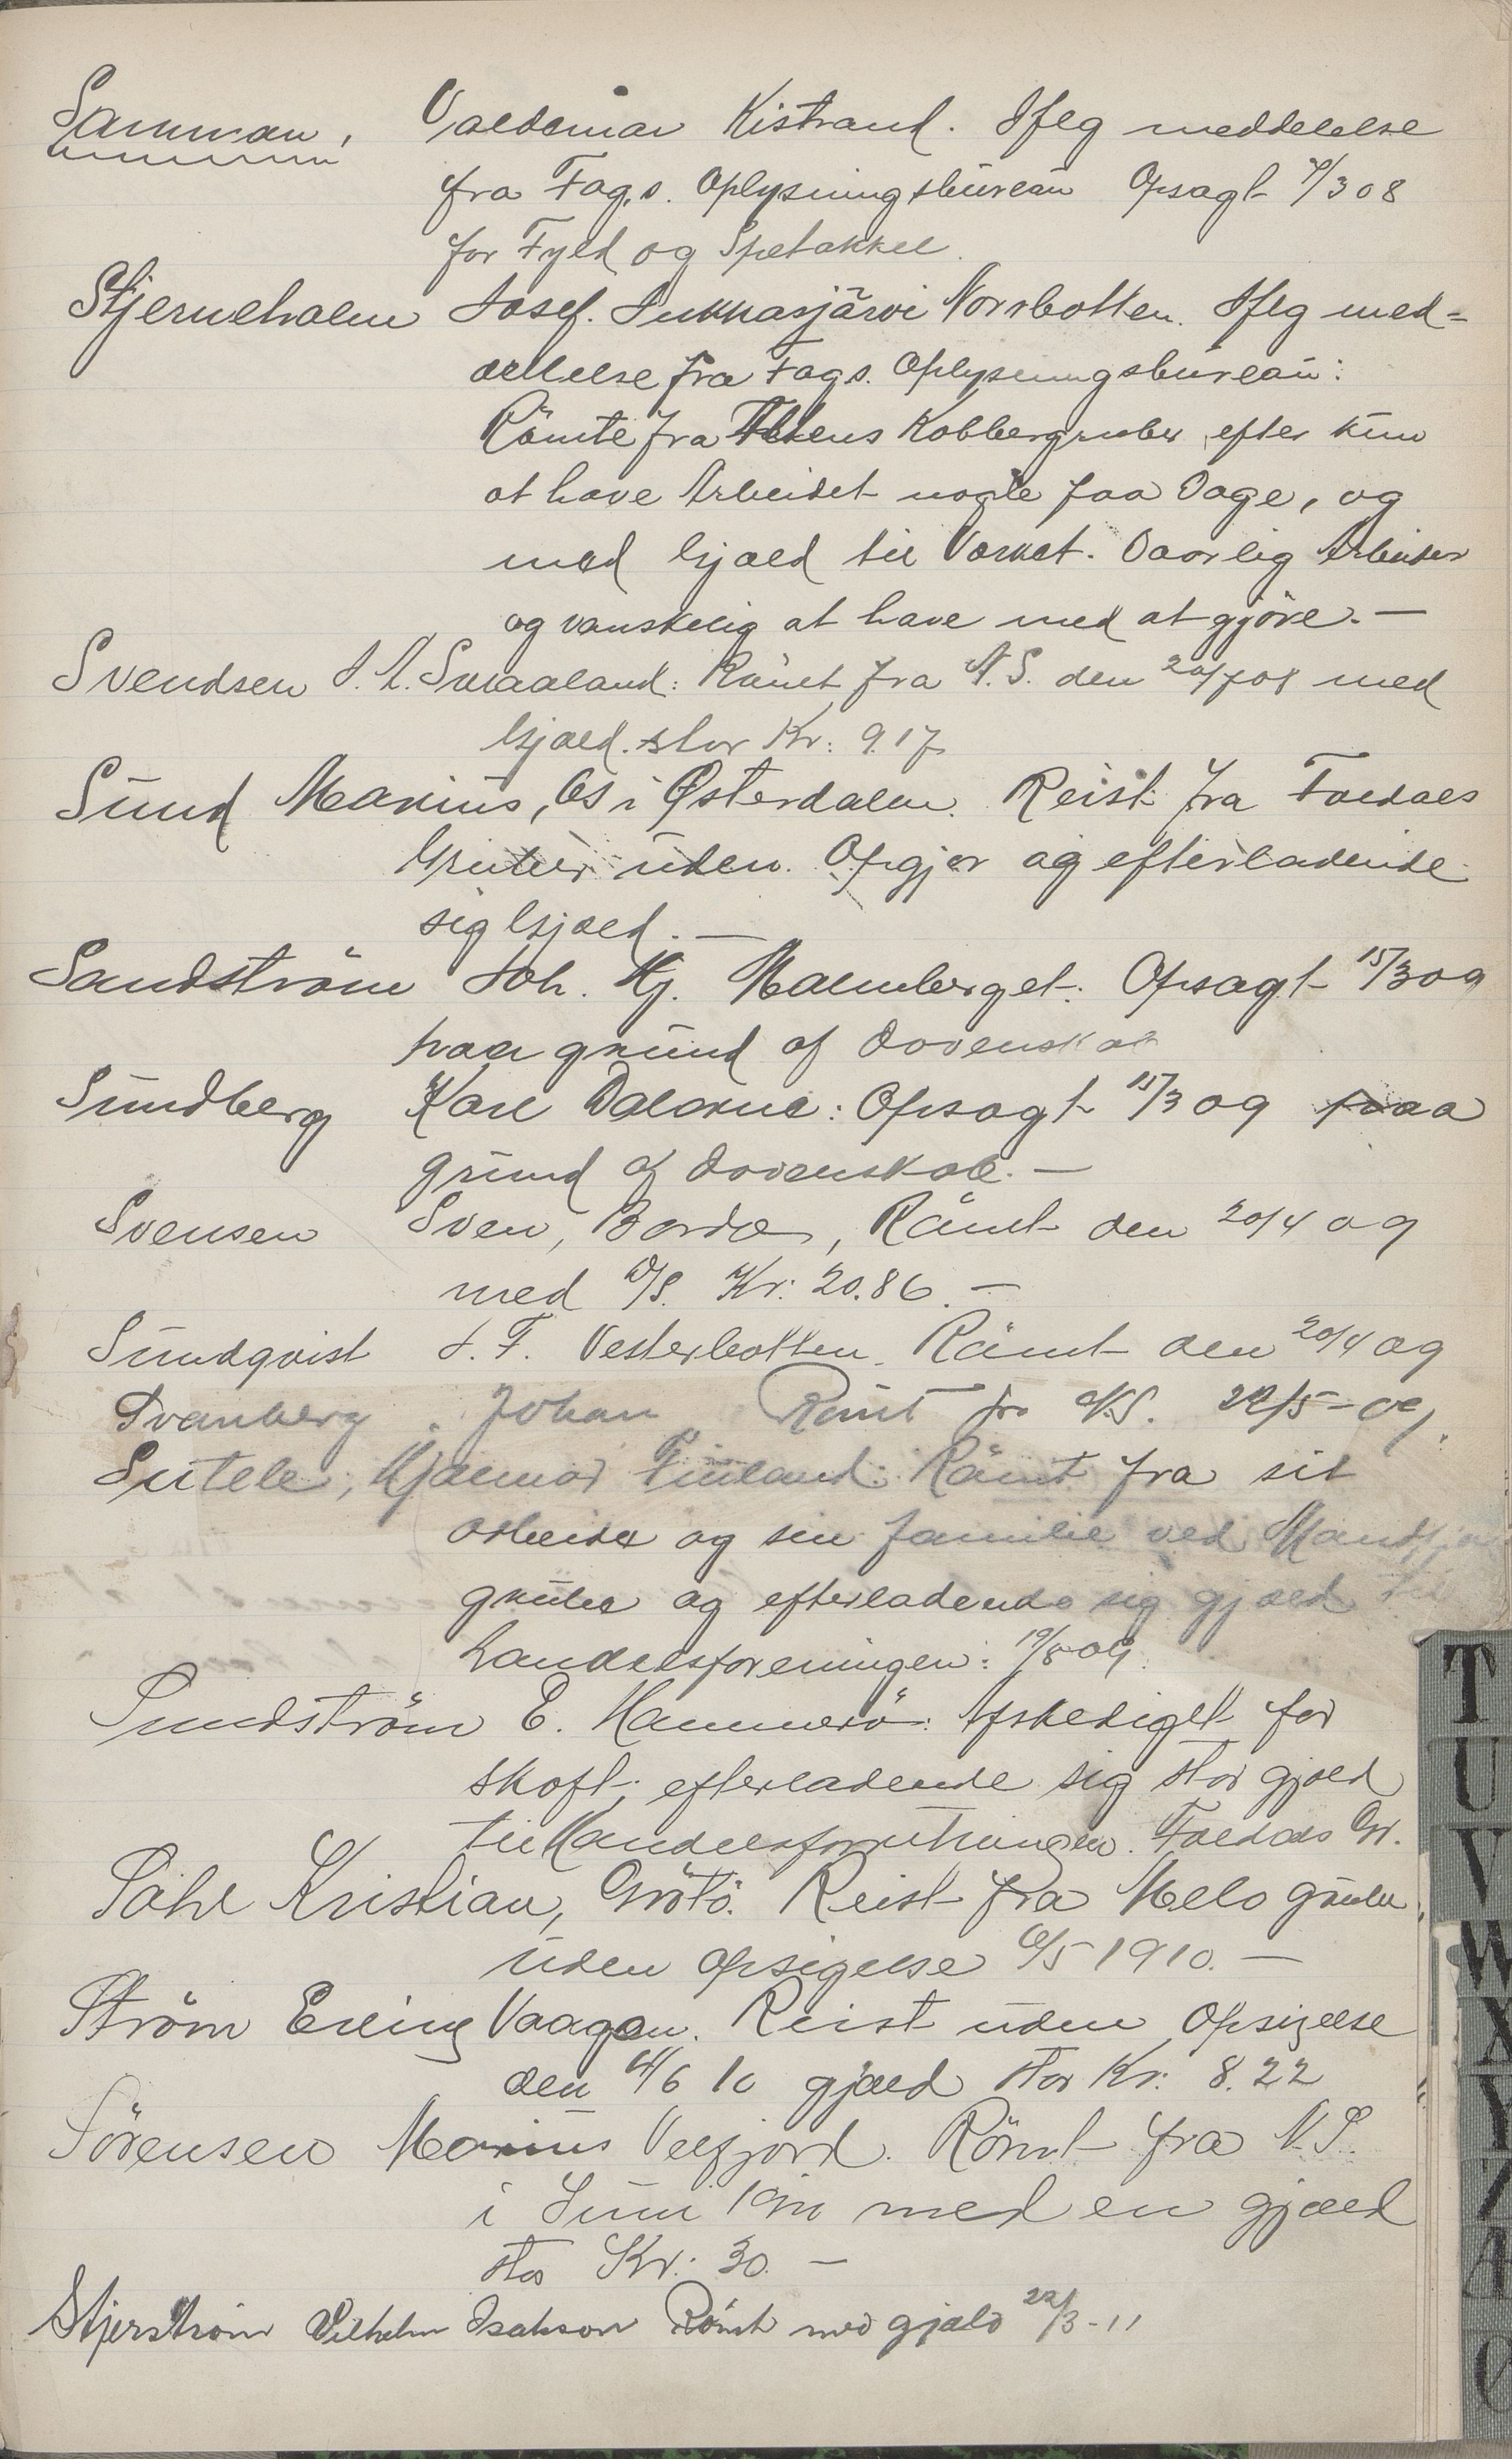 Samman, Valdemar Kistrand. Iflg meddelelse
fra Fags. Oplysningsbureau Opsagt 7/3 08
for Fyld og Spetakkel.
Stjerneholm Josef. Jukkasjärvi Norrbotten. Iflg med-
delelse fra Fags. Oplysningsbureau:
Römte fra Kobbergruber efter kun
at have Arbeidet nogle faa Dage, og
med Gjæld til Værket. Daarlig Arbeider
og vanskelig at have med at gjöre. —
Svendsen J. A. Smaaland: Römt fra N.S. den 20/7 08 med
Gjæld stor Kr: 9.17
Sund Marius, Os i Østerdalen. Reist fra Foldals
Gruber uden Opgjør og efterladende
sig Gjæld. —
Sandström Joh. Hj. Malmberget: Opsagt 15/3 09
paa grund af Dovenskab
Sundberg Karl Dalarne: Opsagt 15/3 09 paa
grund af Dovenskab. —
Svensen Sven, Bordø, Römt den 20/4 09
med G/S. Kr: 20.86. —
Sundqvist J. F. Vesterbotten. Römt den 20/4 09
Svanberg, Johan Römt fr N.S. 22/5 - 09.
Sutele, Hjalmar Finland: Römt fra sit
arbeide og sin familie ved
grube og efterladende sig gjæld til
handelsforeningen: 19/8 09.
Sundström E. Hammerö: Afskediget for
skoft; efterladende sig stor gjæld
til Handelsforretningen. Foldals Gr.
Påhl Kristian, Grötö. Reist fra Melo grube,
uden opsigelse 6/5 1910. —
Ström Erling Vaagan. Reist uden Opsigelse
den 4/6 10 gjæld stor Kr: 8.22
Sörensen Marius Velfjord. Römt fra N.S.
i Juni 1910 med en gjæld
stor Kr: 30. —
Stjerström Vilhelm Isakson Römt med gjæld 22/3 - 11
T
U
V
W
X
Y
Z
Æ
Ø